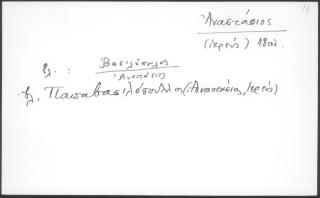 Ἀναστάσιος
(ἱερεύς) 18 αἰ.
βλ. : Βασιλόπουλος
Ἀναστάσιος
βλ. Παπαβασιλόπουλλος (Ἀναστάσιος, ἱερεύς)